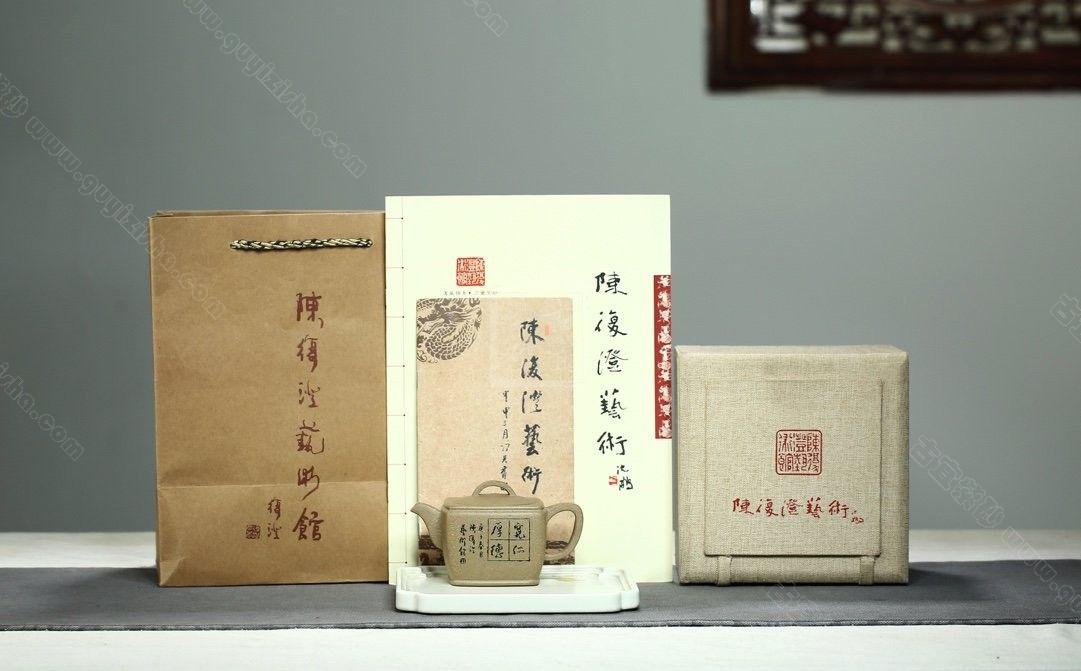 陳復澄藝術館
復澄
陳復澄藝術
陳復澄藝術
甲申三月
寬仁
厚德
藝術館
陳復澄藝術館
陳復澄藝術
www.guyizisha.com